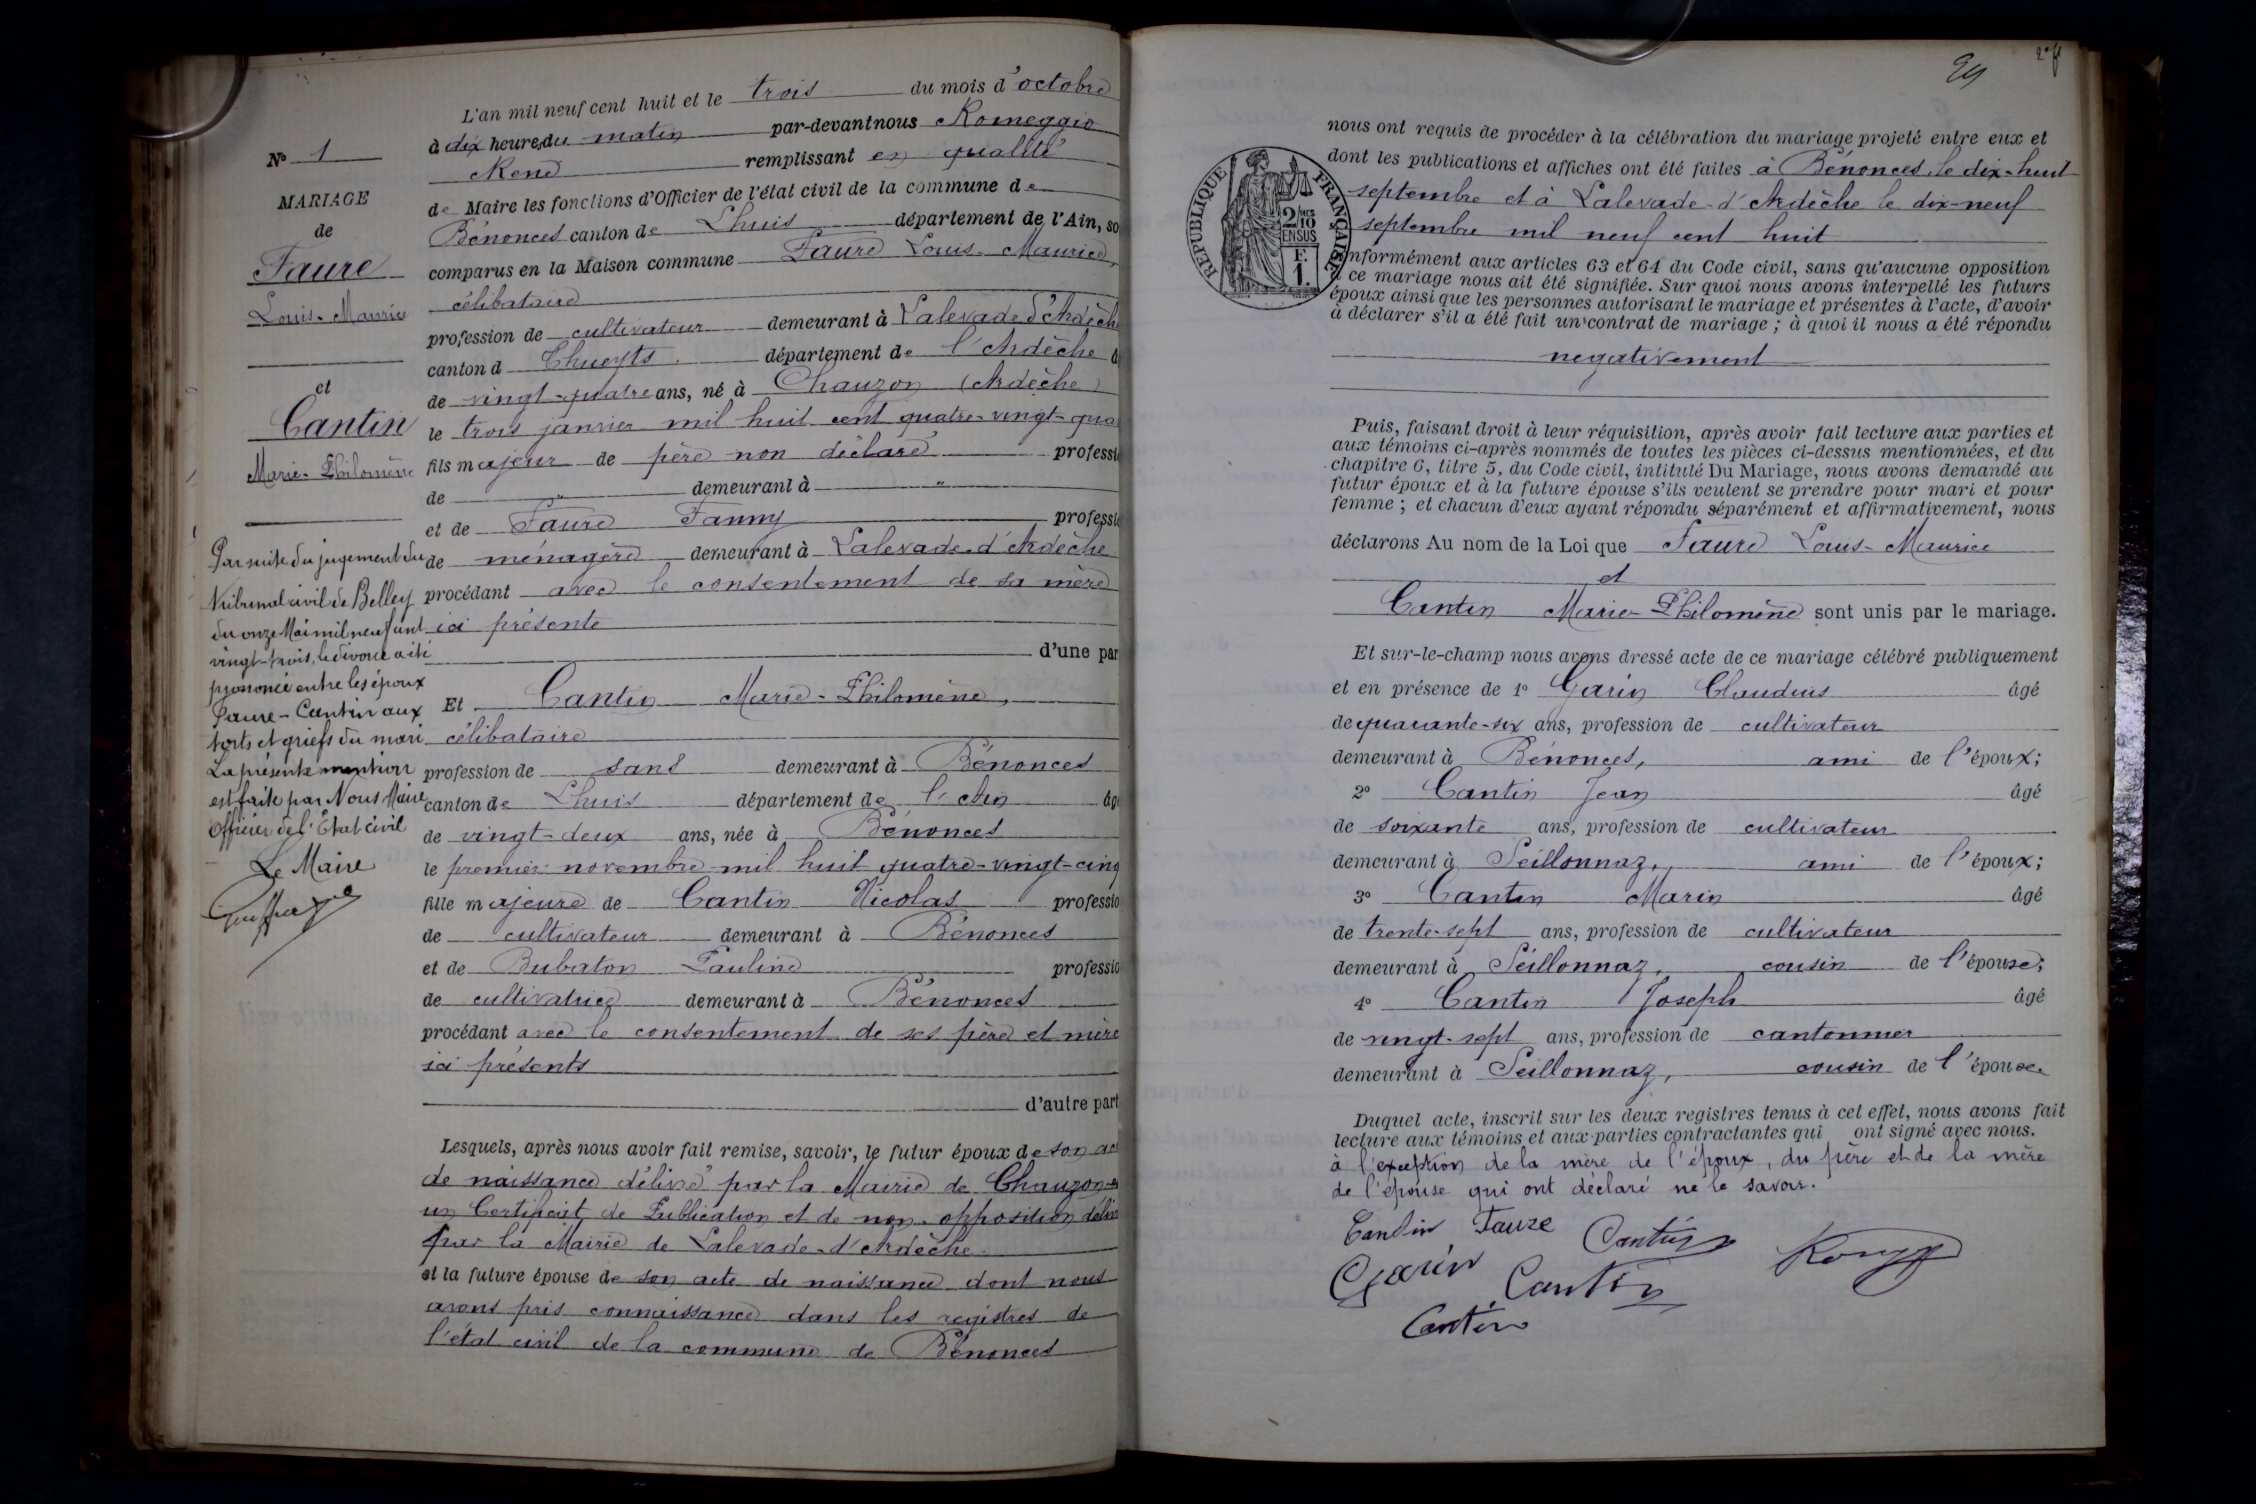 L'an mil neuf cent huit et le trois du mois d'octobre
à dix heures du matin par-devant nous Romeggio
René remplissant en qualité
de Maire les fonctions d'Officier de l'état civil de la commune de
Bénonces canton de Lhuis département de l'Ain, so
comparus en la Maison commune Faure Louis-Maurice,
célibataire
profession de cultivateur demeurant à Lalevade d'Ardèche
canton d Thueyts département de l'Ardèche
de vingt-quatre ans, né à Chauzon (Ardèche)
le trois janvier mil huit cent quatre-vingt-qua
fils majeur de père non déclaré professi
de " demeurant à "
et de Faure Fanny professi
de ménagère demeurant à Lalevade-d'Ardèche
procédant avec le consentement de sa mère
ici présente
d'une par
Et Cantin Marie-Philomène,
célibataire
profession de sans demeurant à Bénonces
canton de Lhuis département de l'Ain âg
de vingt-deux ans, née à Bénonces
le premier novembre mil huit quatre-vingt-cinq
fille majeure de Cantin Nicolas professio
de cultivateur demeurant à Bénonces
et de Buberton Pauline professio
de cultivatrice demeurant à Bénonces
procédant avec le consentement de ses père et mère
ici présents
d'autre part
Lesquels, après nous avoir fait remise, savoir, le futur époux de son ac
de naissance délivré par la Mairie de Chauzon et
un Certificat de Publication et de non-opposition déliv
par la Mairie de Lalevade-d'Ardèche
et la future épouse de son acte de naissance dont nous
avons pris connaissance dans les registres de
l'état civil de la commune de Bénonces
N° 1
MARIAGE
de
Faure
Louis-Maurice
et
Cantin
Marie-Philomène
Par suite du jugement du
Tribunal civil de Belley
du onze Mai mil neuf cent
vingt-trois, le divorce a été
prononcé entre les époux
Faure-Cantin aux
torts et griefs du mari
La présente mention
est faite par Nous Maire
Officier de l'Etat civil
Le Maire
29
nous ont requis de procéder à la célébration du mariage projeté entre eux et
dont les publications et affiches ont été faites à Bénonces le dix-huit
septembre et à Lalevade-d'Ardèche le dix-neuf
septembre mil neuf cent huit
RÉPUBLIQUE FRANÇAISE
2/10 EN SUS
F. 1.
onformément aux articles 63 et 64 du Code civil, sans qu'aucune opposition
à ce mariage nous ait été signifiée. Sur quoi nous avons interpellé les futurs
époux ainsi que les personnes autorisant le mariage et présentes à l'acte, d'avoir
à déclarer s'il a été fait un contrat de mariage ; à quoi il nous a été répondu
negativement
Puis, faisant droit à leur réquisition, après avoir fait lecture aux parties et
aux témoins ci-après nommés de toutes les pièces ci-dessus mentionnées, et du
chapitre 6, titre 5, du Code civil, intitulé Du Mariage, nous avons demandé au
futur époux et à la future épouse s'ils veulent se prendre pour mari et pour
femme ; et chacun d'eux ayant répondu séparément et affirmativement, nous
déclarons Au nom de la Loi que Faure Louis-Maurice
et
Cantin Marie-Philomène sont unis par le mariage.
Et sur-le-champ nous avons dressé acte de ce mariage célébré publiquement
et en présence de 1° Garin Claudius âgé
de quarante-six ans, profession de cultivateur
demeurant à Bénonces, ami de l'époux;
2° Cantin Jean âgé
de soixante ans, profession de cultivateur
demeurant à Seillonnaz, ami de l'époux;
3° Cantin Marin âgé
de trente-sept ans, profession de cultivateur
demeurant à Seillonnaz, cousin de l'épouse;
4° Cantin Joseph âgé
de vingt-sept ans, profession de cantonnier
demeurant à Seillonnaz, cousin de l'épouse.
Duquel acte, inscrit sur les deux registres tenus à cet effet, nous avons fait
lecture aux témoins et aux parties contractantes qui ont signé avec nous.
à l'exception de la mère de l'époux, du père et de la mère
de l'épouse qui ont déclaré ne le savoir.
Cantin Faure Cantin
Garin Cantin
Cantin